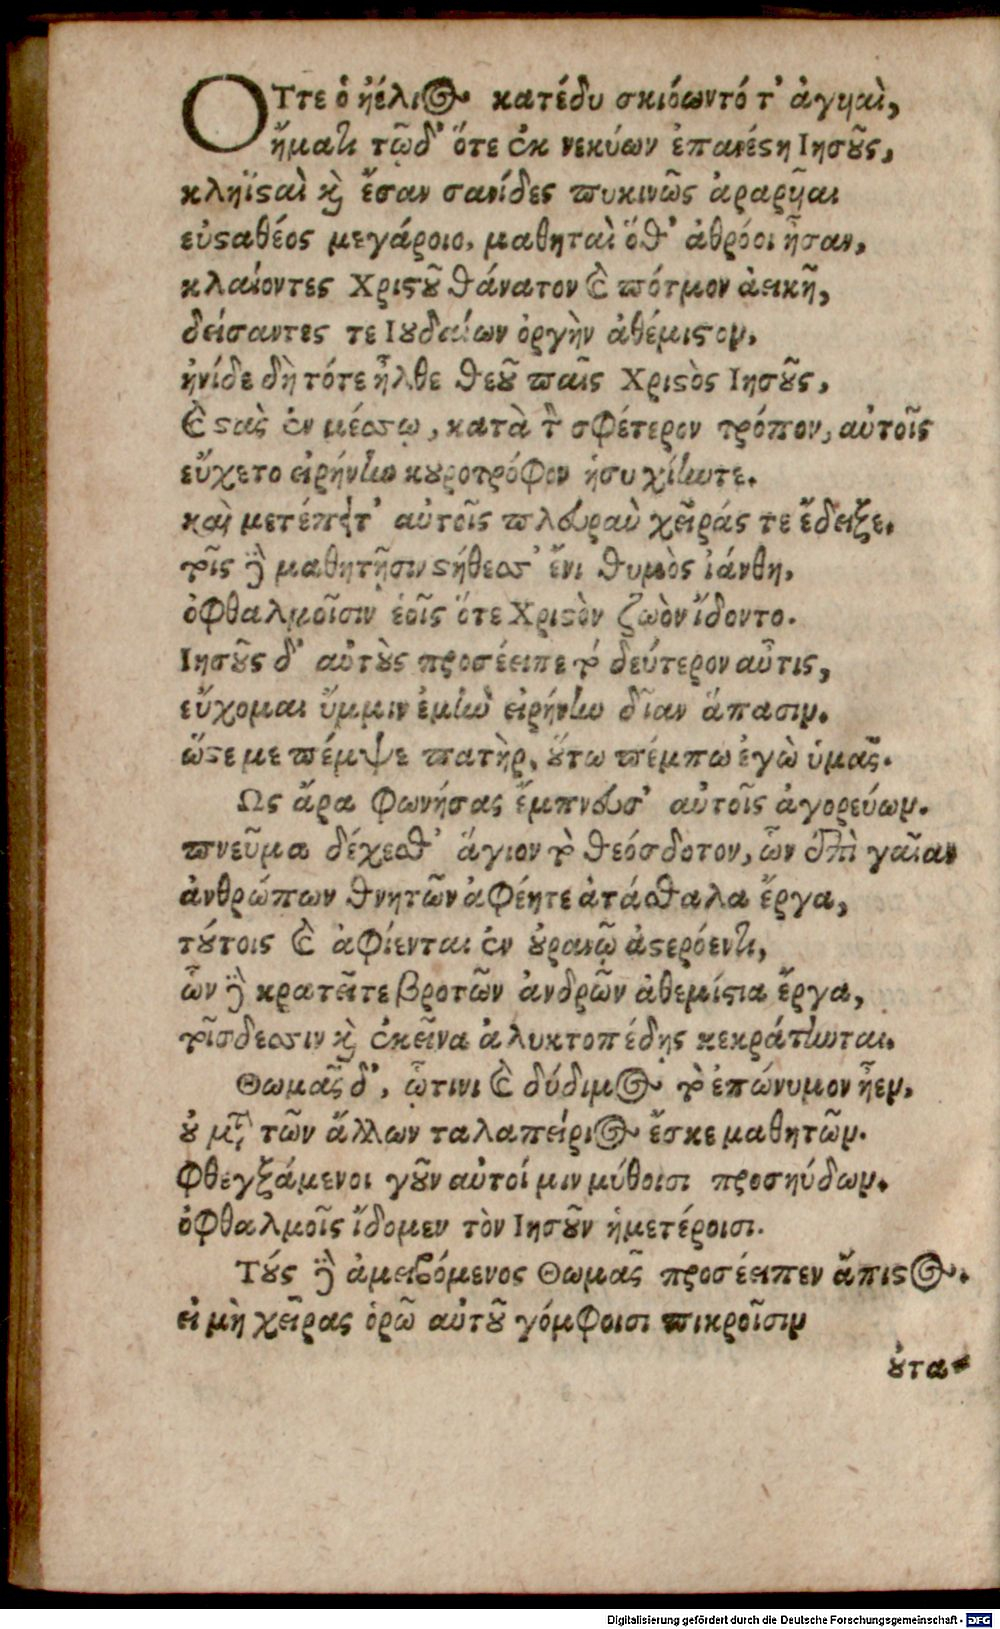 Ὅττε ὁ ἠέλιος κατέδυ σκιόωντό τ' ἀγυιαὶ,
ἤματι τῷδ' ὅτε ἐκ νεκύων ἐπανέστη Ἰησοῦς,
κληϊσταὶ καὶ ἔσαν σανίδες πυκινῶς ἀραρῆαι
εὐσταθέος μεγάροιο, μαθηταὶ ὅθ' ἀθρόοι ἦσαν,
κλαίοντες Χριστοῦ θάνατον καὶ πότμον ἀεικῆ,
δείσαντες τε Ἰουδαίων ὀργὴν ἀθέμιστον,
ἠνίδε δὴ τότε ἦλθε θεοῦ παῖς Χριστὸς Ἰησοῦς,
καὶ στὰς ἐν μέσσῳ, κατὰ τὸν σφέτερον τρόπον, αὐτοῖς
εὔχετο εἰρήνην κουροτρόφον ἡσυχίην τε.
καὶ μετέπειτ' αὐτοῖς πλευρὰν χεῖράς τε ἔδειξε.
τοῖς δὲ μαθητῇσιν στήθεσσ' ἔνι θυμὸς ἰάνθη,
ὀφθαλμοῖσιν ἑοῖς ὅτε Χριστὸν ζωὸν ἴδοντο.
Ἰησοῦς δ' αὐτοὺς προσέειπε τὸ δεύτερον αὖτις,
εὔχομαι ὔμμιν ἐμὴν εἰρήνην δῖαν ἅπασιν.
ὥστε με πέμψε πατὴρ, οὕτω πέμπω ἐγὼ ὑμᾶς.
Ὣς ἄρα φωνήσας ἔμπνευσ' αὐτοῖς ἀγορεύων.
πνεῦμα δέχεσθ' ἅγιον τὸ θεόσδοτον, ὧν ἐπὶ γαῖαν
ἀνθρώπων θνητῶν ἀφέητε ἀτάσθαλα ἔργα,
τούτοις καὶ ἀφίενται ἐν οὐρανῷ ἀστερόεντι,
ὧν δὲ κρατεῖτε βροτῶν ἀνδρῶν ἀθεμίστια ἔργα,
τοῖσδεσσιν καὶ ἐκεῖνα ἀλυκτοπέδῃς κεκράτηνται.
Θωμᾶς δ', ᾧτινι καὶ δύδιμος τὸ ἐπώνυμον ἦεν,
οὐ μετὰ τῶν ἄλλων ταλαπείριος ἔσκε μαθητῶν.
Φθεγξάμενοι γοῦν αὐτοί μιν μύθοισι προσηύδων.
ὀφθαλμοῖς ἴδομεν τὸν Ἰησοῦν ἡμετέροισι.
Τούς δὲ ἀμειβόμενος Θωμᾶς προσέειπεν ἄπιστος.
εἰ μὴ χεῖρας ὁρῶ αὐτοῦ γόμφοισι πικροῖσιν
οὐτα-
Digitalisierung gefördert durch die Deutsche Forschungsgemeinschaft - DFG